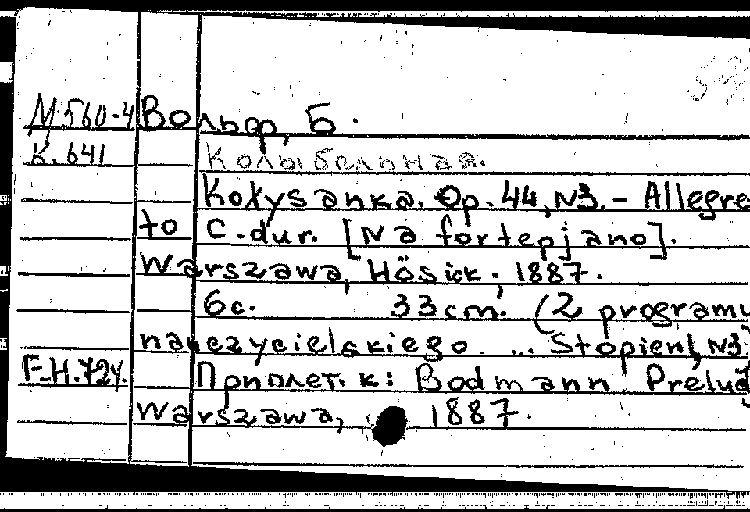 М560-4 Вольф, Б.
К.641 Колыбельная.
Kołysanka. Op. 44, N3. - Allegre
to C-dur. [Na fortepjano].
Warszawa, Hösick. 1887.
6c. 33cm. (Z programu
nauczycielskiego ... Stopień I, N3.
F.H.724. Приплет. к: Bodmann Prelud
Warszawa, 1887.